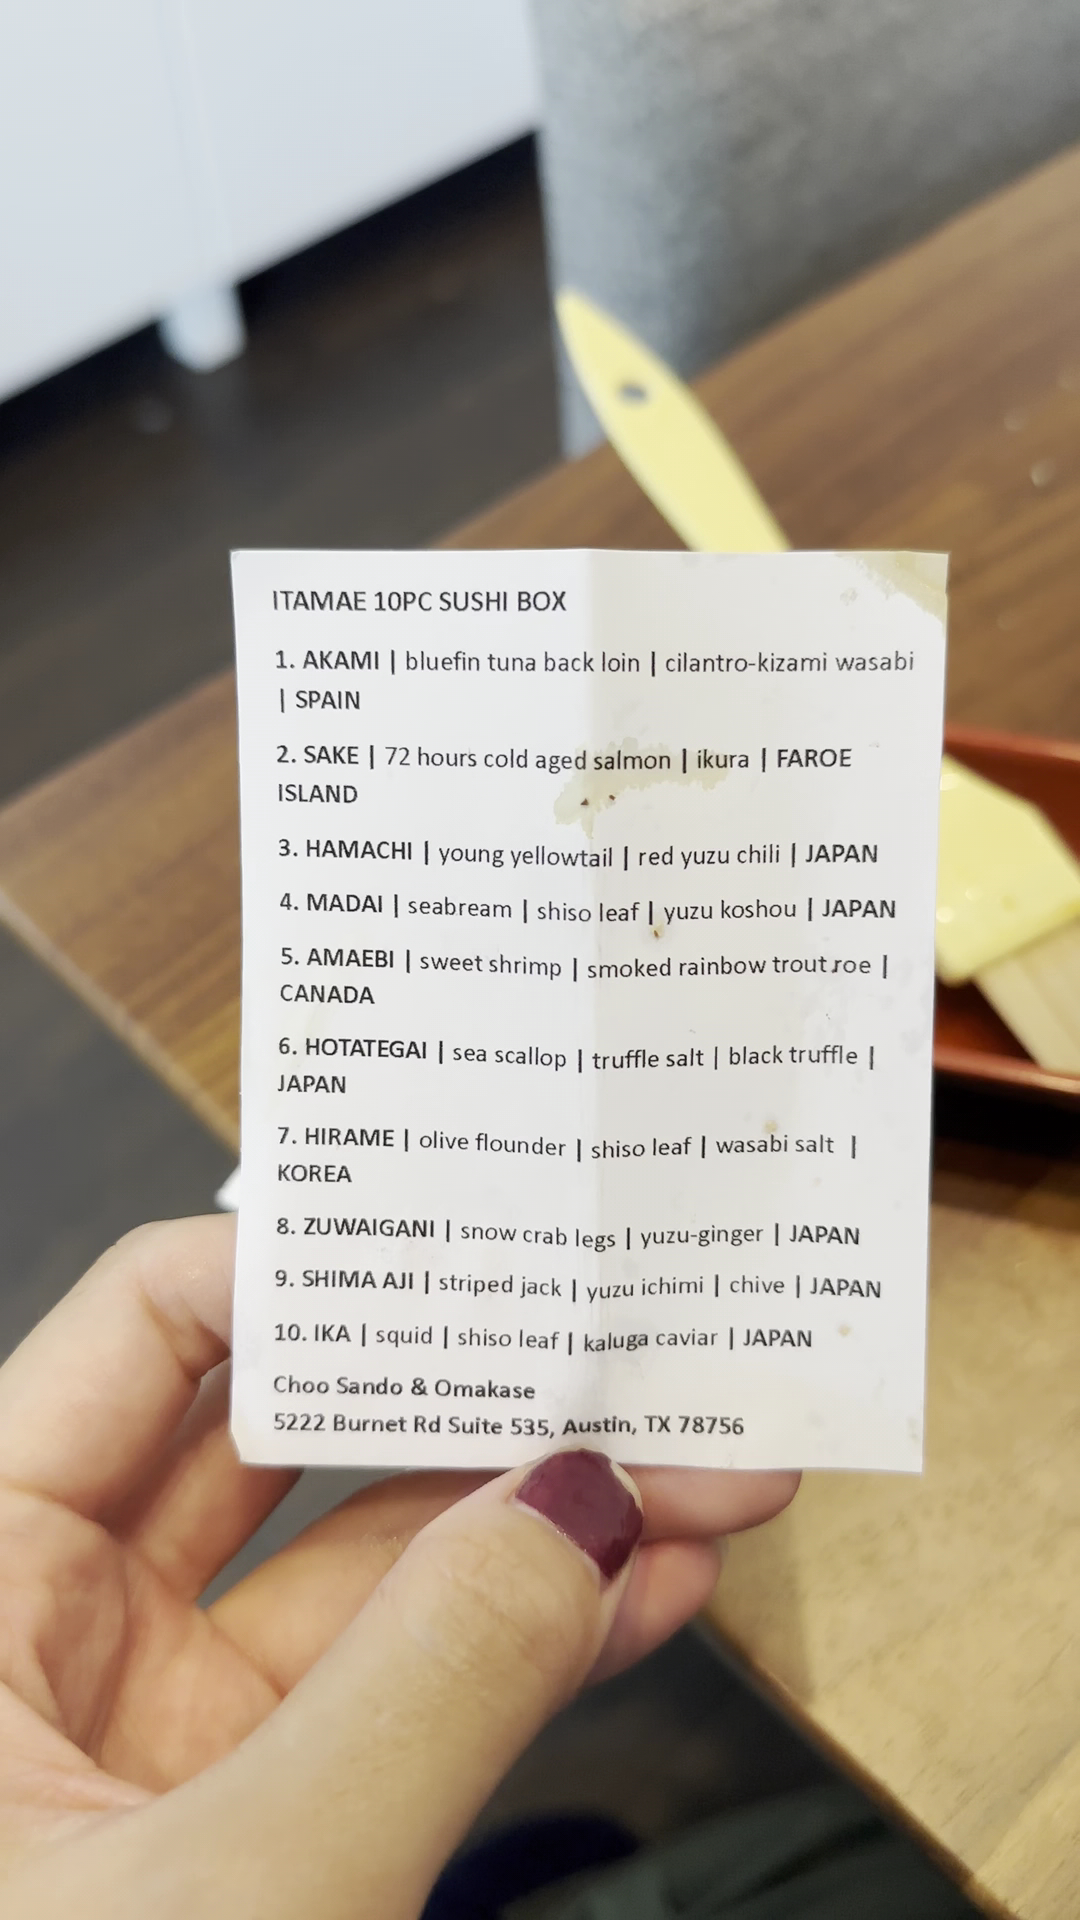 ITAMAE 10PC SUSHI BOX
1. AKAMI | bluefin tuna back loin | cilantro-kizami wasabi
| SPAIN
2. SAKE | 72 hours cold aged salmon | ikura | FAROE
ISLAND
3. HAMACHI | young yellowtail | red yuzu chili | JAPAN
4. MADAI | seabream | shiso leaf | yuzu koshou | JAPAN
5. AMAEBI | sweet shrimp | smoked rainbow trout roe |
CANADA
6. HOTATEGAI | sea scallop | truffle salt | black truffle |
JAPAN
7. HIRAME | olive flounder | shiso leaf | wasabi salt |
KOREA
8. ZUWAIGANI | snow crab legs | yuzu-ginger | JAPAN
9. SHIMA AJI | striped jack | yuzu ichimi | chive | JAPAN
10. IKA | squid | shiso leaf | kaluga caviar | JAPAN
Choo Sando & Omakase
5222 Burnet Rd Suite 535, Austin, TX 78756